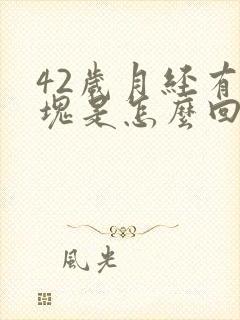 42歲月経有
塊是怎麼回
風光